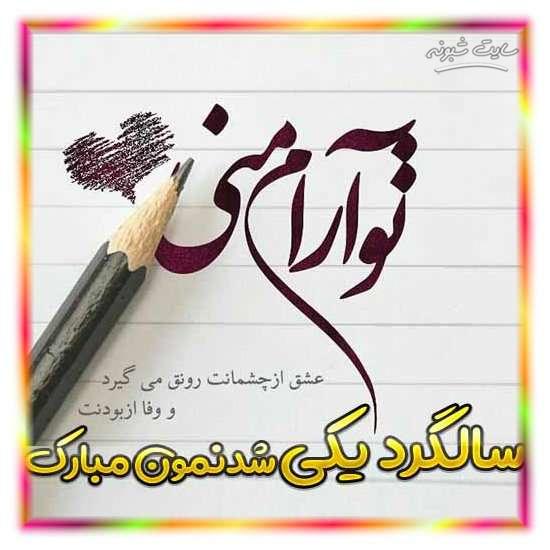 سایت شبونه
تو آرام منی
عشق ازچشمانت رونق می گیرد
و وفا ازبودنت
سالگرد یکی شدنمون مبارک